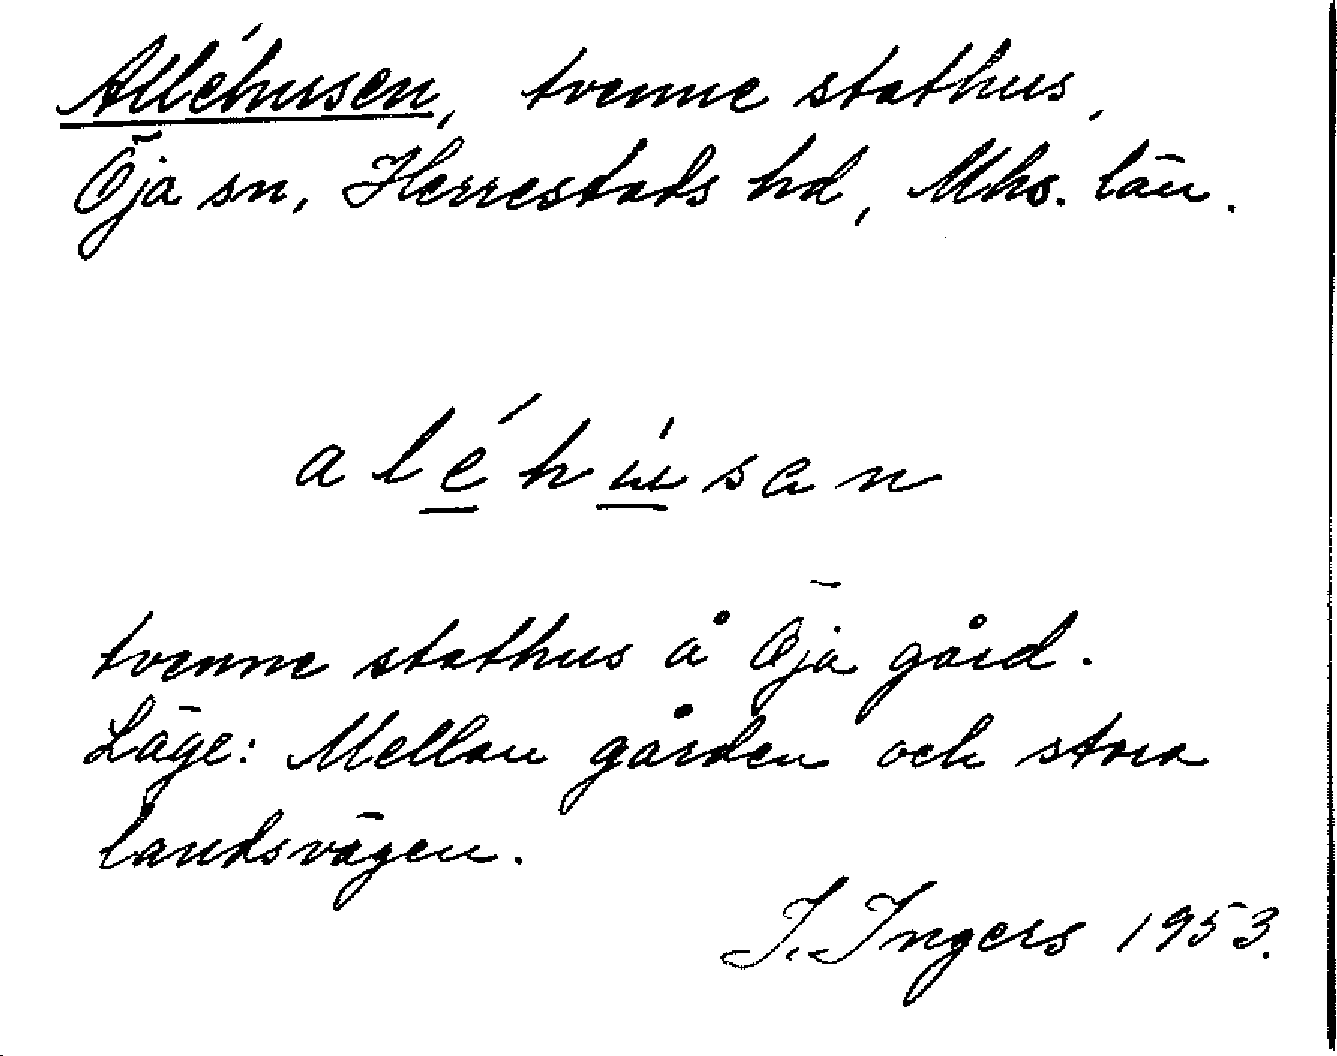 Alléhusen, tvenne stathus,
Öja sn, Herrestads hd, Mhs. län.
aléhúsan
tvenne stathus å Öja gård.
Läge: Mellan gården och stora
landsvägen.
I. Ingers 1953.